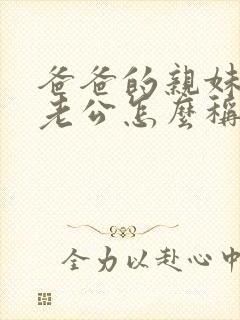 爸爸的親妹
老公怎麼稱
全力以赴心中